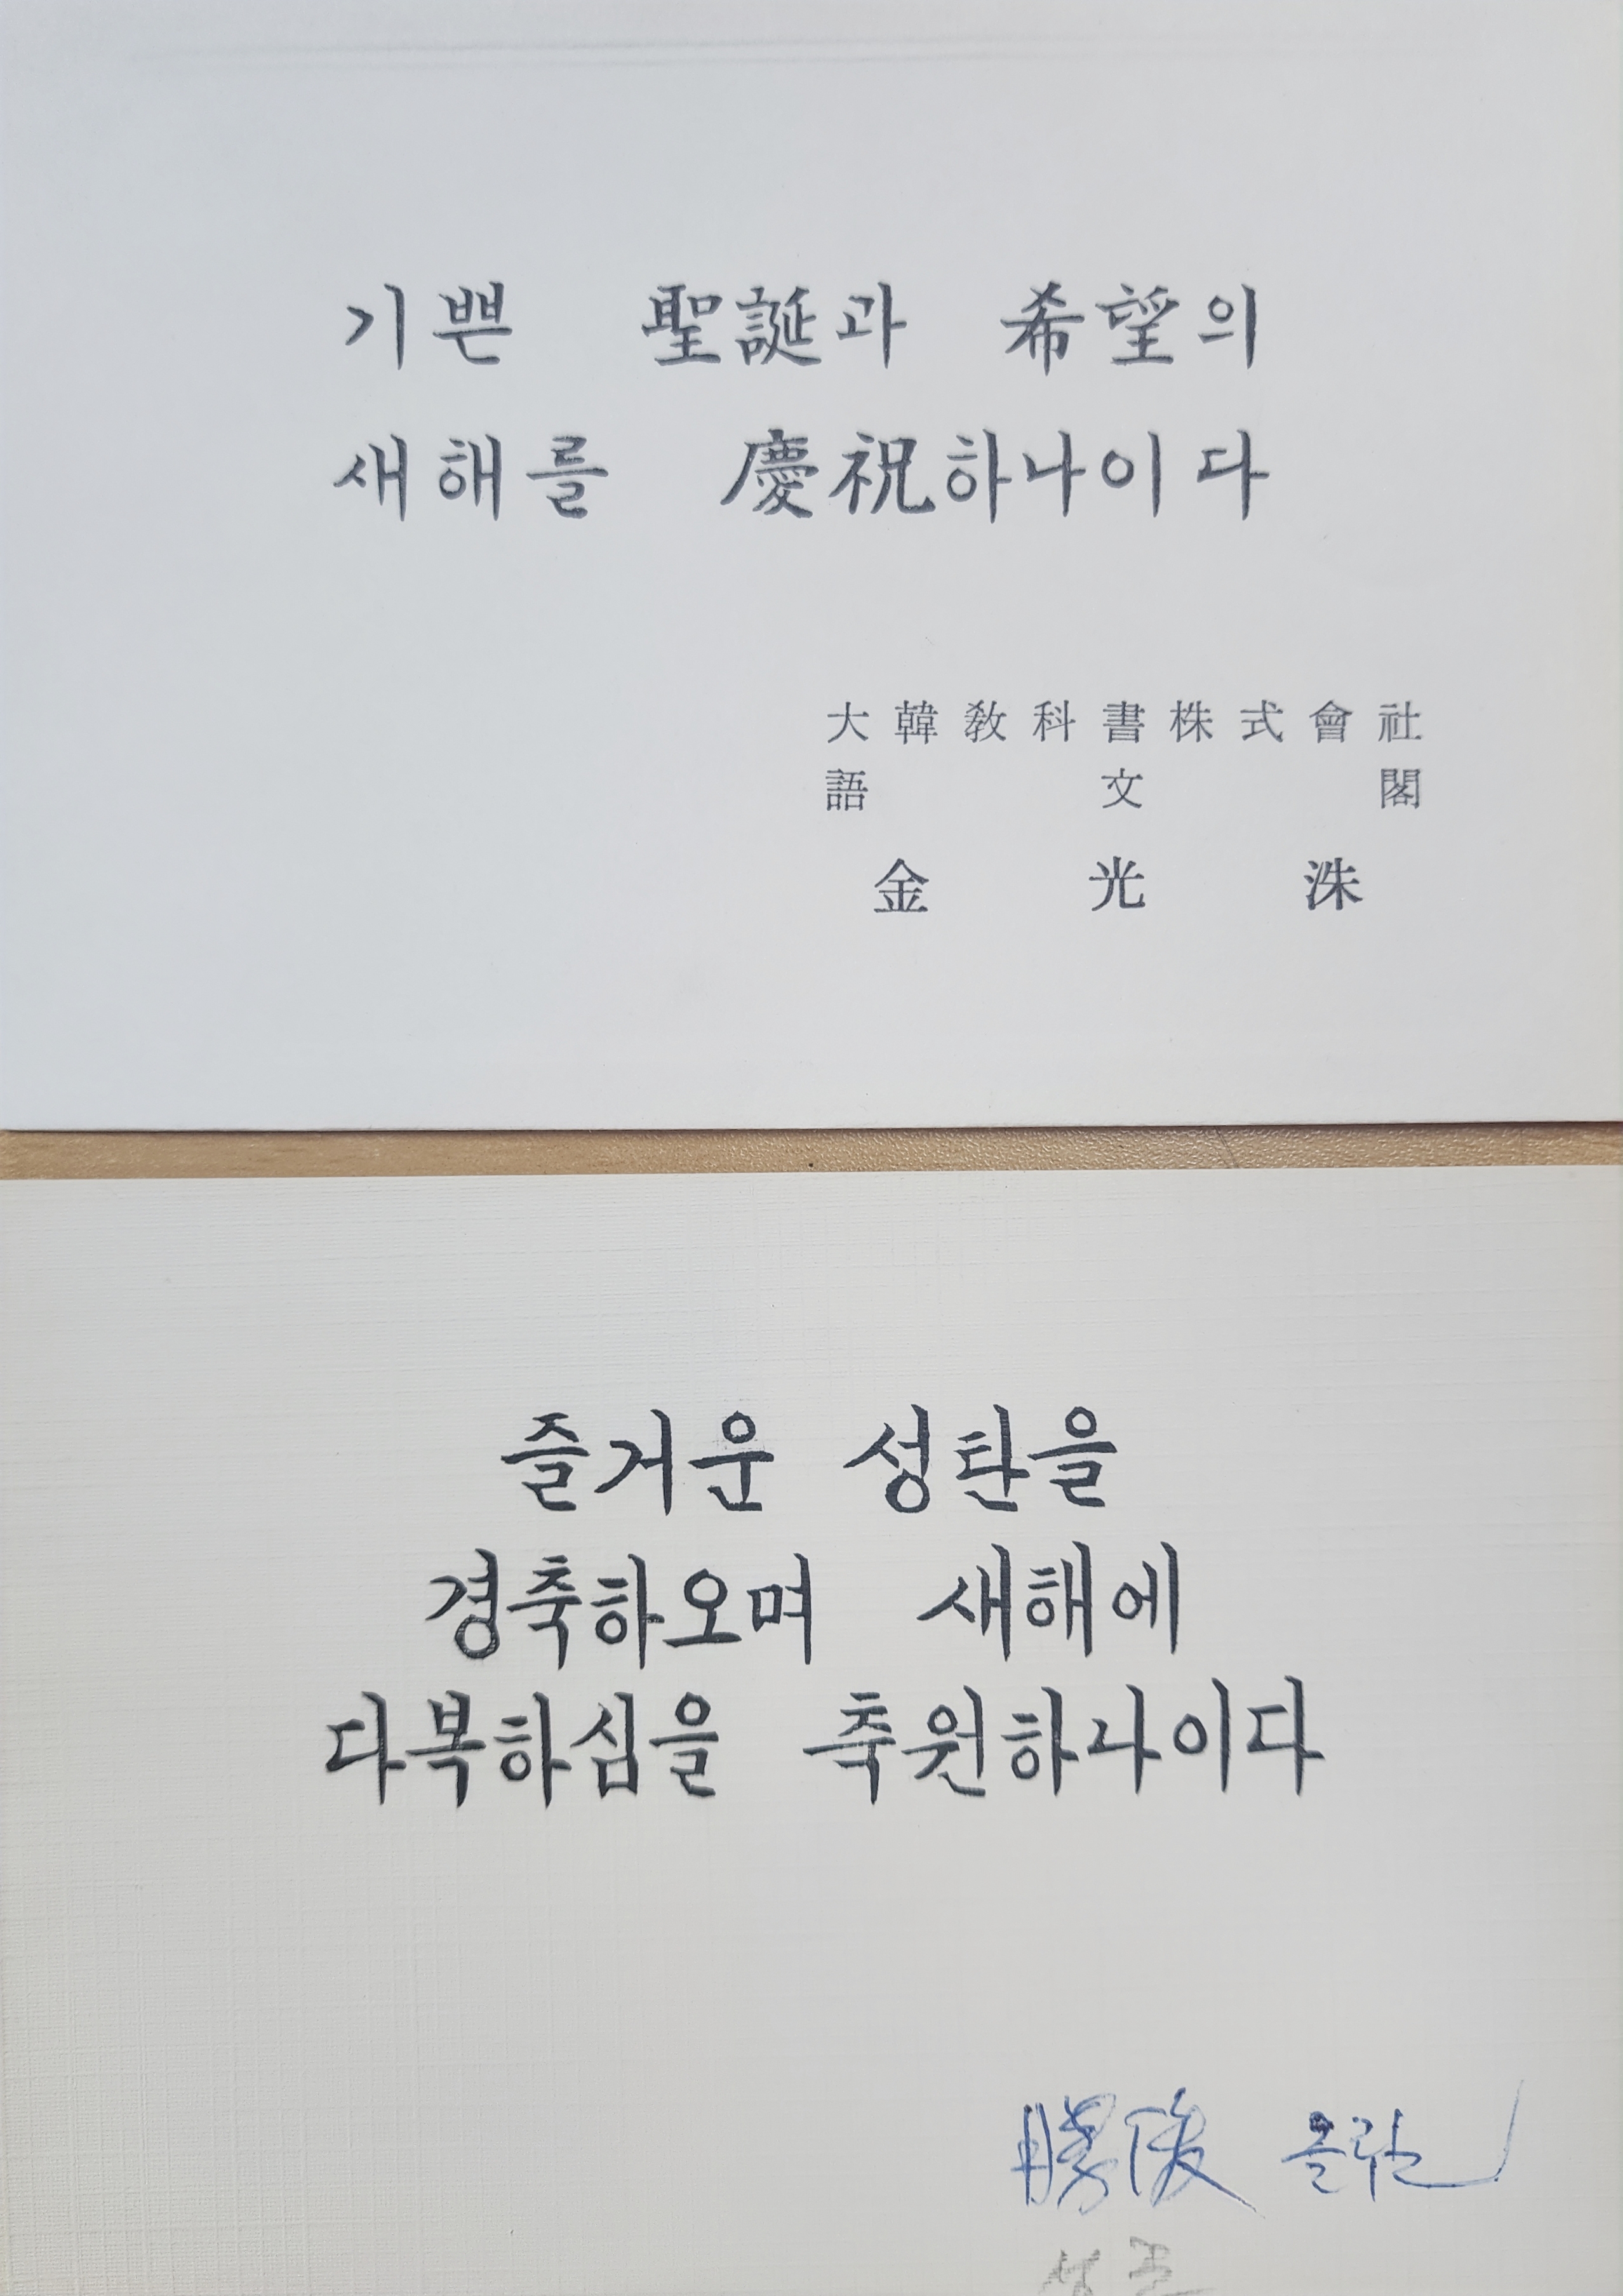 기쁜 聖誕과 希望의
새해를 慶祝하나이다
大韓敎科書株式會社
語文閣
金光洙
즐거운 성탄을
경축하오며 새해에
다복하심을 축원하나이다
勝俊 올림